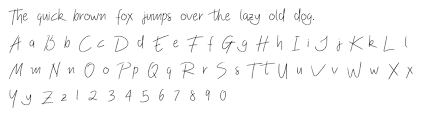 The quick brown fox jumps over the lazy old dog.
A a B b C c D d E e F f G g H h I i J j K k L l
M m N n O o P p Q q R r S s T t U u V v W w X x
Y y Z z 1 2 3 4 5 6 7 8 9 0